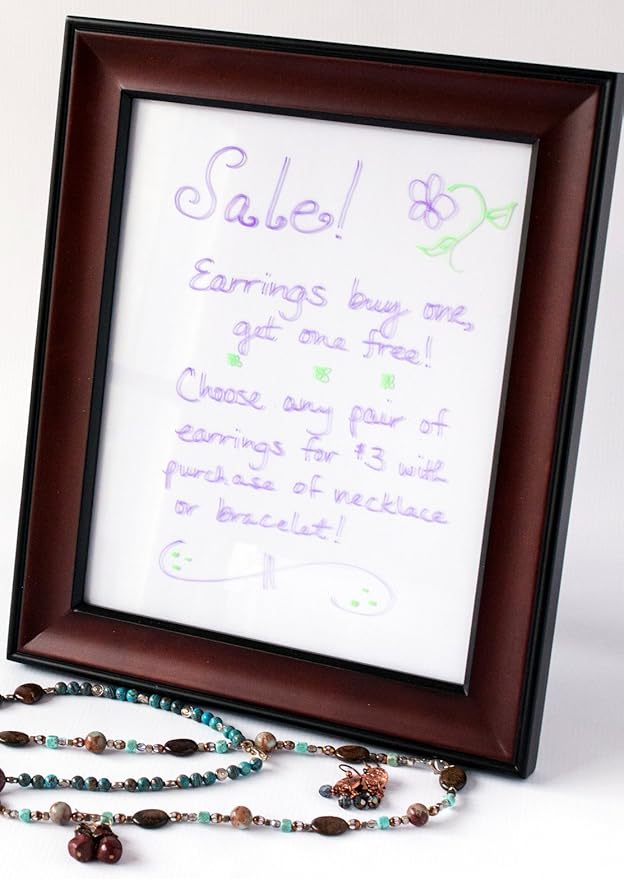 Sale!
Earrings buy one,
get one free!
Choose any pair of
earrings for $3 with
purchase of necklace
or bracelet!